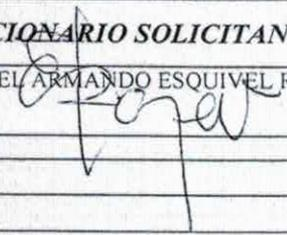 CIONARIO SOLICITAN
EL ARMANDO ESQUIVEL